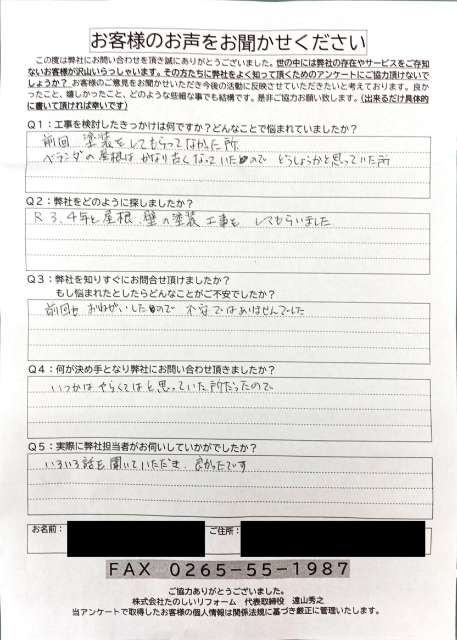 お客様のお声をお聞かせください
この度は弊社にお問い合わせを頂き誠にありがとうございました。世の中には弊社の存在やサービスをご存知
ないお客様が沢山いらっしゃいます。その方たちに弊社をよく知って頂くためのアンケートにご協力頂けないで
しょうか？ お客様のご意見をお聞かせいただき今後の活動に反映させていただきたいと考えております。良か
ったこと、嬉しかったこと、どのような些細な事でも結構です。是非ご協力お願い致します。（出来るだけ具体的
に書いて頂ければ幸いです）
Q１：工事を検討したきっかけは何ですか？どんなことで悩まれていましたか？
前回 塗装をしてもらってなかった所
ベランダの屋根は かなり古くなっていたので どうしようかと思っていた所
Q２：弊社をどのように探しましたか？
R３.４年と屋根、壁の塗装工事を してもらいました
Q３：弊社を知りすぐにお問合せ頂けましたか？
もし悩まれたとしたらどんなことがご不安でしたか？
前回も おねがいしたので 不安ではありませんでした
Q４：何が決め手となり弊社にお問い合わせ頂きましたか？
いつかは やらくてはと思っていた所だったので
Q５：実際に弊社担当者がお伺いしていかがでしたか？
いろいろ話を聞いていただき 良かったです
お名前：
ご住所：
FAX 0265-55-1987
ご協力ありがとうございました。
株式会社たのしいリフォーム 代表取締役 遠山秀之
当アンケートで取得したお客様の個人情報は関係法規に基づき厳正に管理いたします。